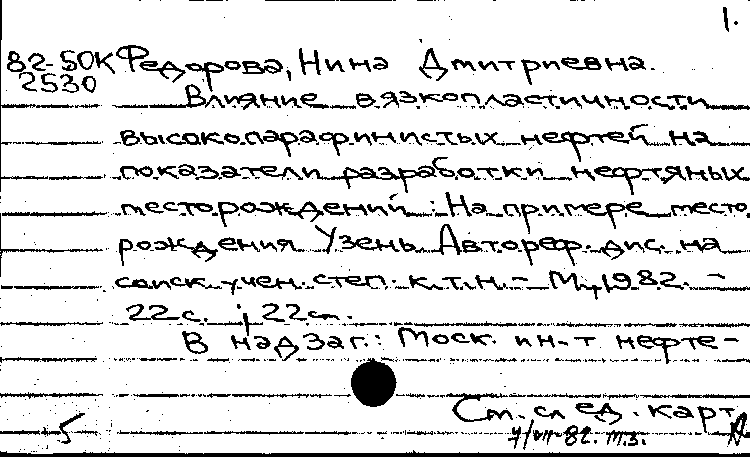 1.
82-50К Федорова, Нина Дмитриевна.
2530
Влияние вязкопластичности
высокопарафинистых нефтей на
показатели разработки нефтяных
месторождений : На примере место
рождения Узень. Автореф. дис. на
соиск. учен. степ. к.т.н. - М., 1982. -
22 с. ; 22 см.
В надзаг.: Моск. ин-т нефте-
См. след. карт.
5 7/VII-82. т.з.